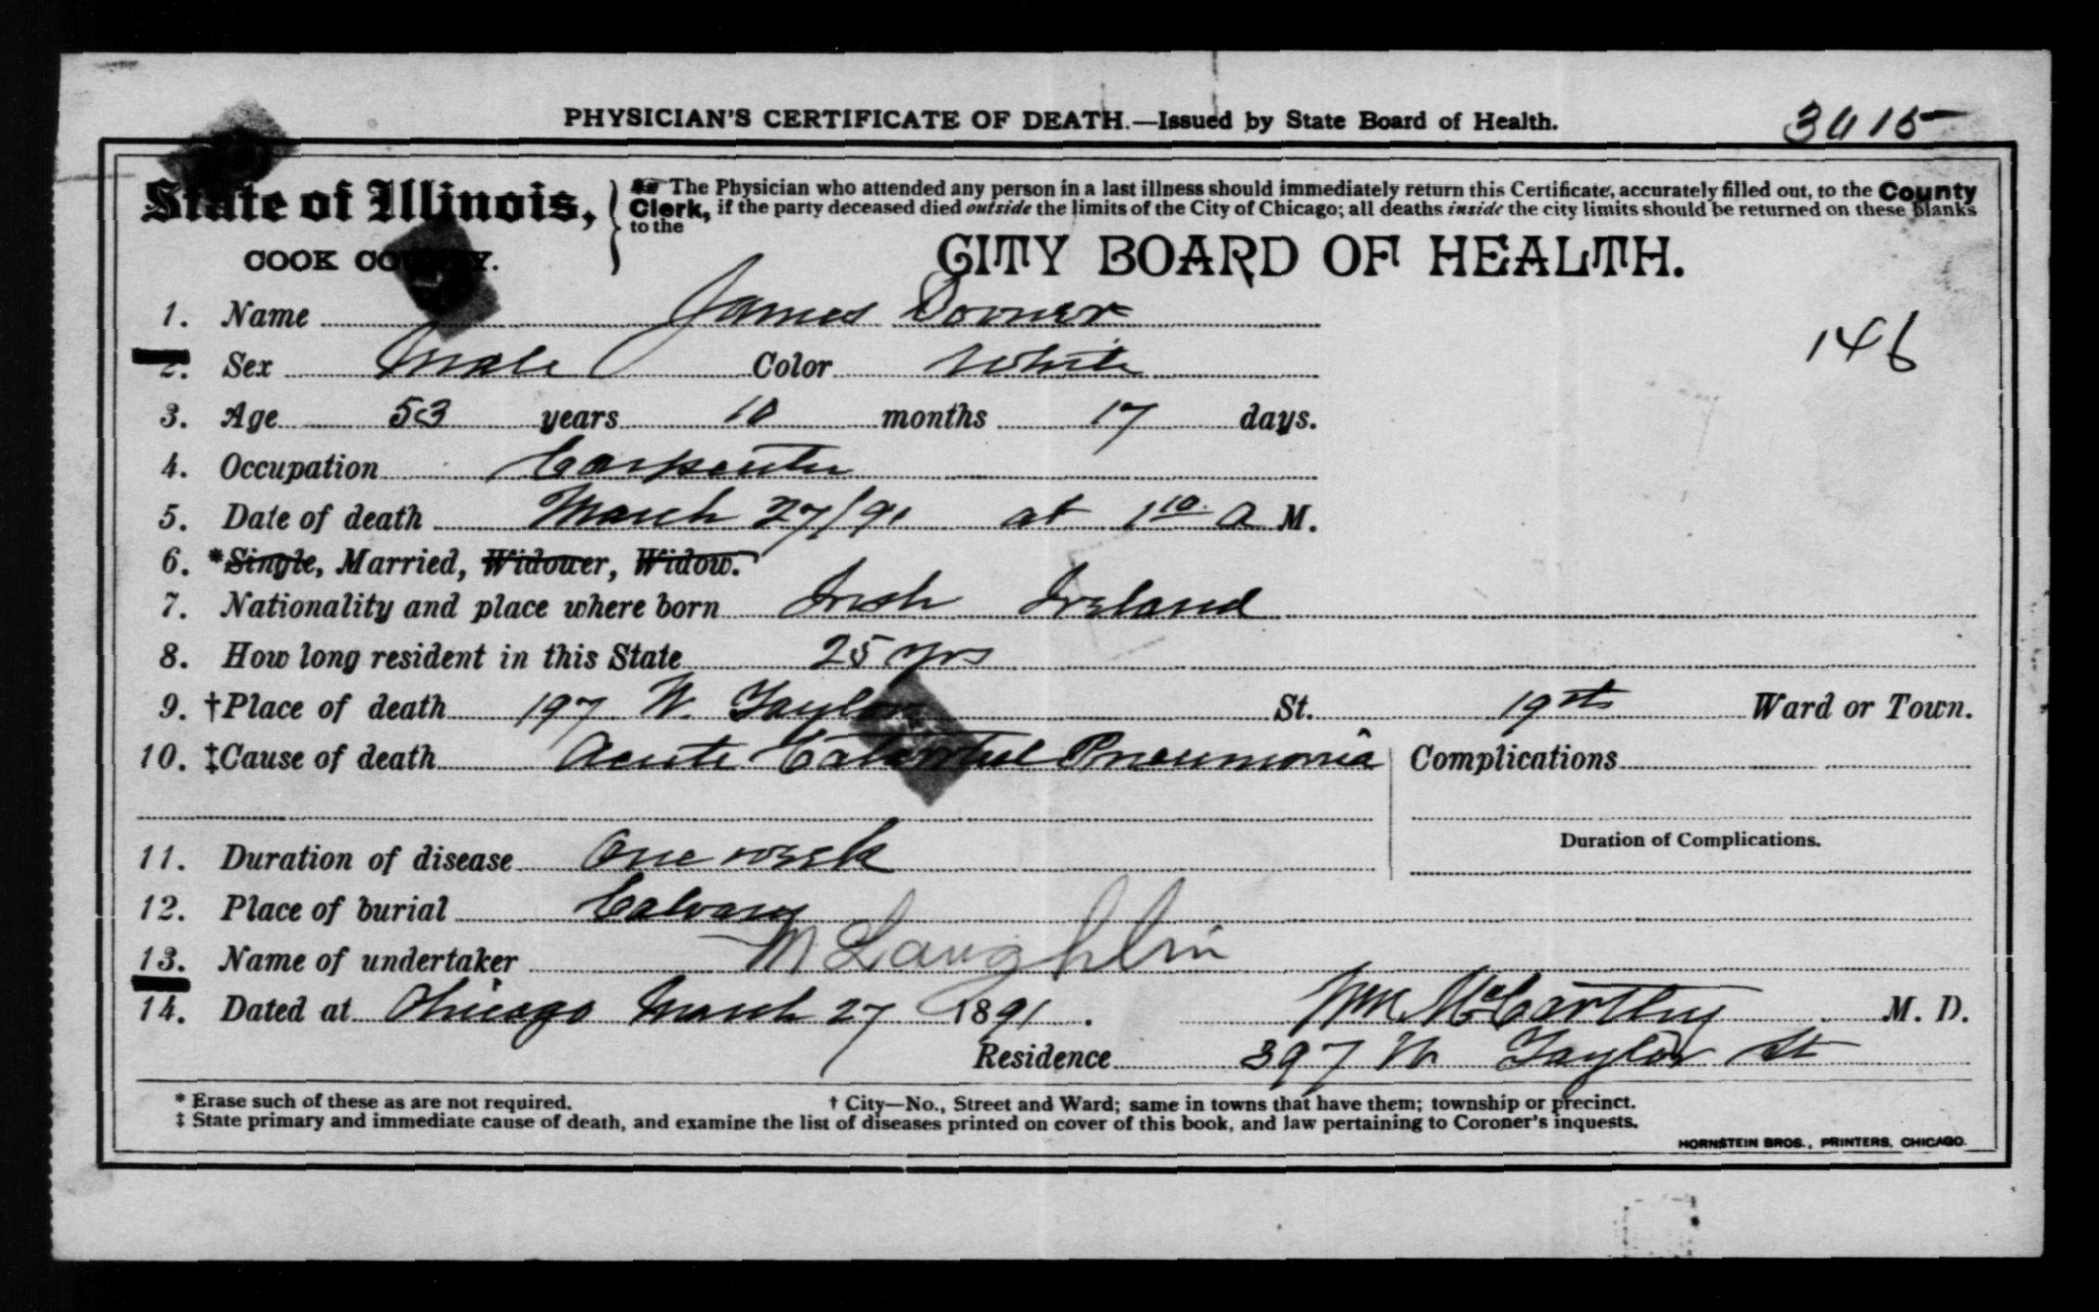 PHYSICIAN'S CERTIFICATE OF DEATH.—Issued by State Board of Health.
3615
State of Illinois,
COOK COUNTY.
The Physician who attended any person in a last illness should immediately return this Certificate, accurately filled out, to the County
Clerk, if the party deceased died outside the limits of the City of Chicago; all deaths inside the city limits should be returned on these blanks
to the
CITY BOARD OF HEALTH.
1. Name James
146
2. Sex Male Color White
3. Age 53 years 10 months 17 days.
4. Occupation Carpenter
5. Date of death March 27/91 at 1 10 A M.
6. *Single, Married, Widower, Widow.
7. Nationality and place where born Irish Ireland
8. How long resident in this State 25 yrs
9. †Place of death 197 W. Taylor St. 19th Ward or Town.
10. ‡Cause of death Acute Catarrhal Pneumonia Complications
Duration of Complications.
11. Duration of disease One week
12. Place of burial Calvary
13. Name of undertaker McLaughlin
14. Dated at Chicago March 27 1891. Wm. McCarthy M. D.
Residence 397 W Taylor St
* Erase such of these as are not required. † City—No., Street and Ward; same in towns that have them; township or precinct.
‡ State primary and immediate cause of death, and examine the list of diseases printed on cover of this book, and law pertaining to Coroner's inquests.
HORNSTEIN BROS., PRINTERS, CHICAGO.